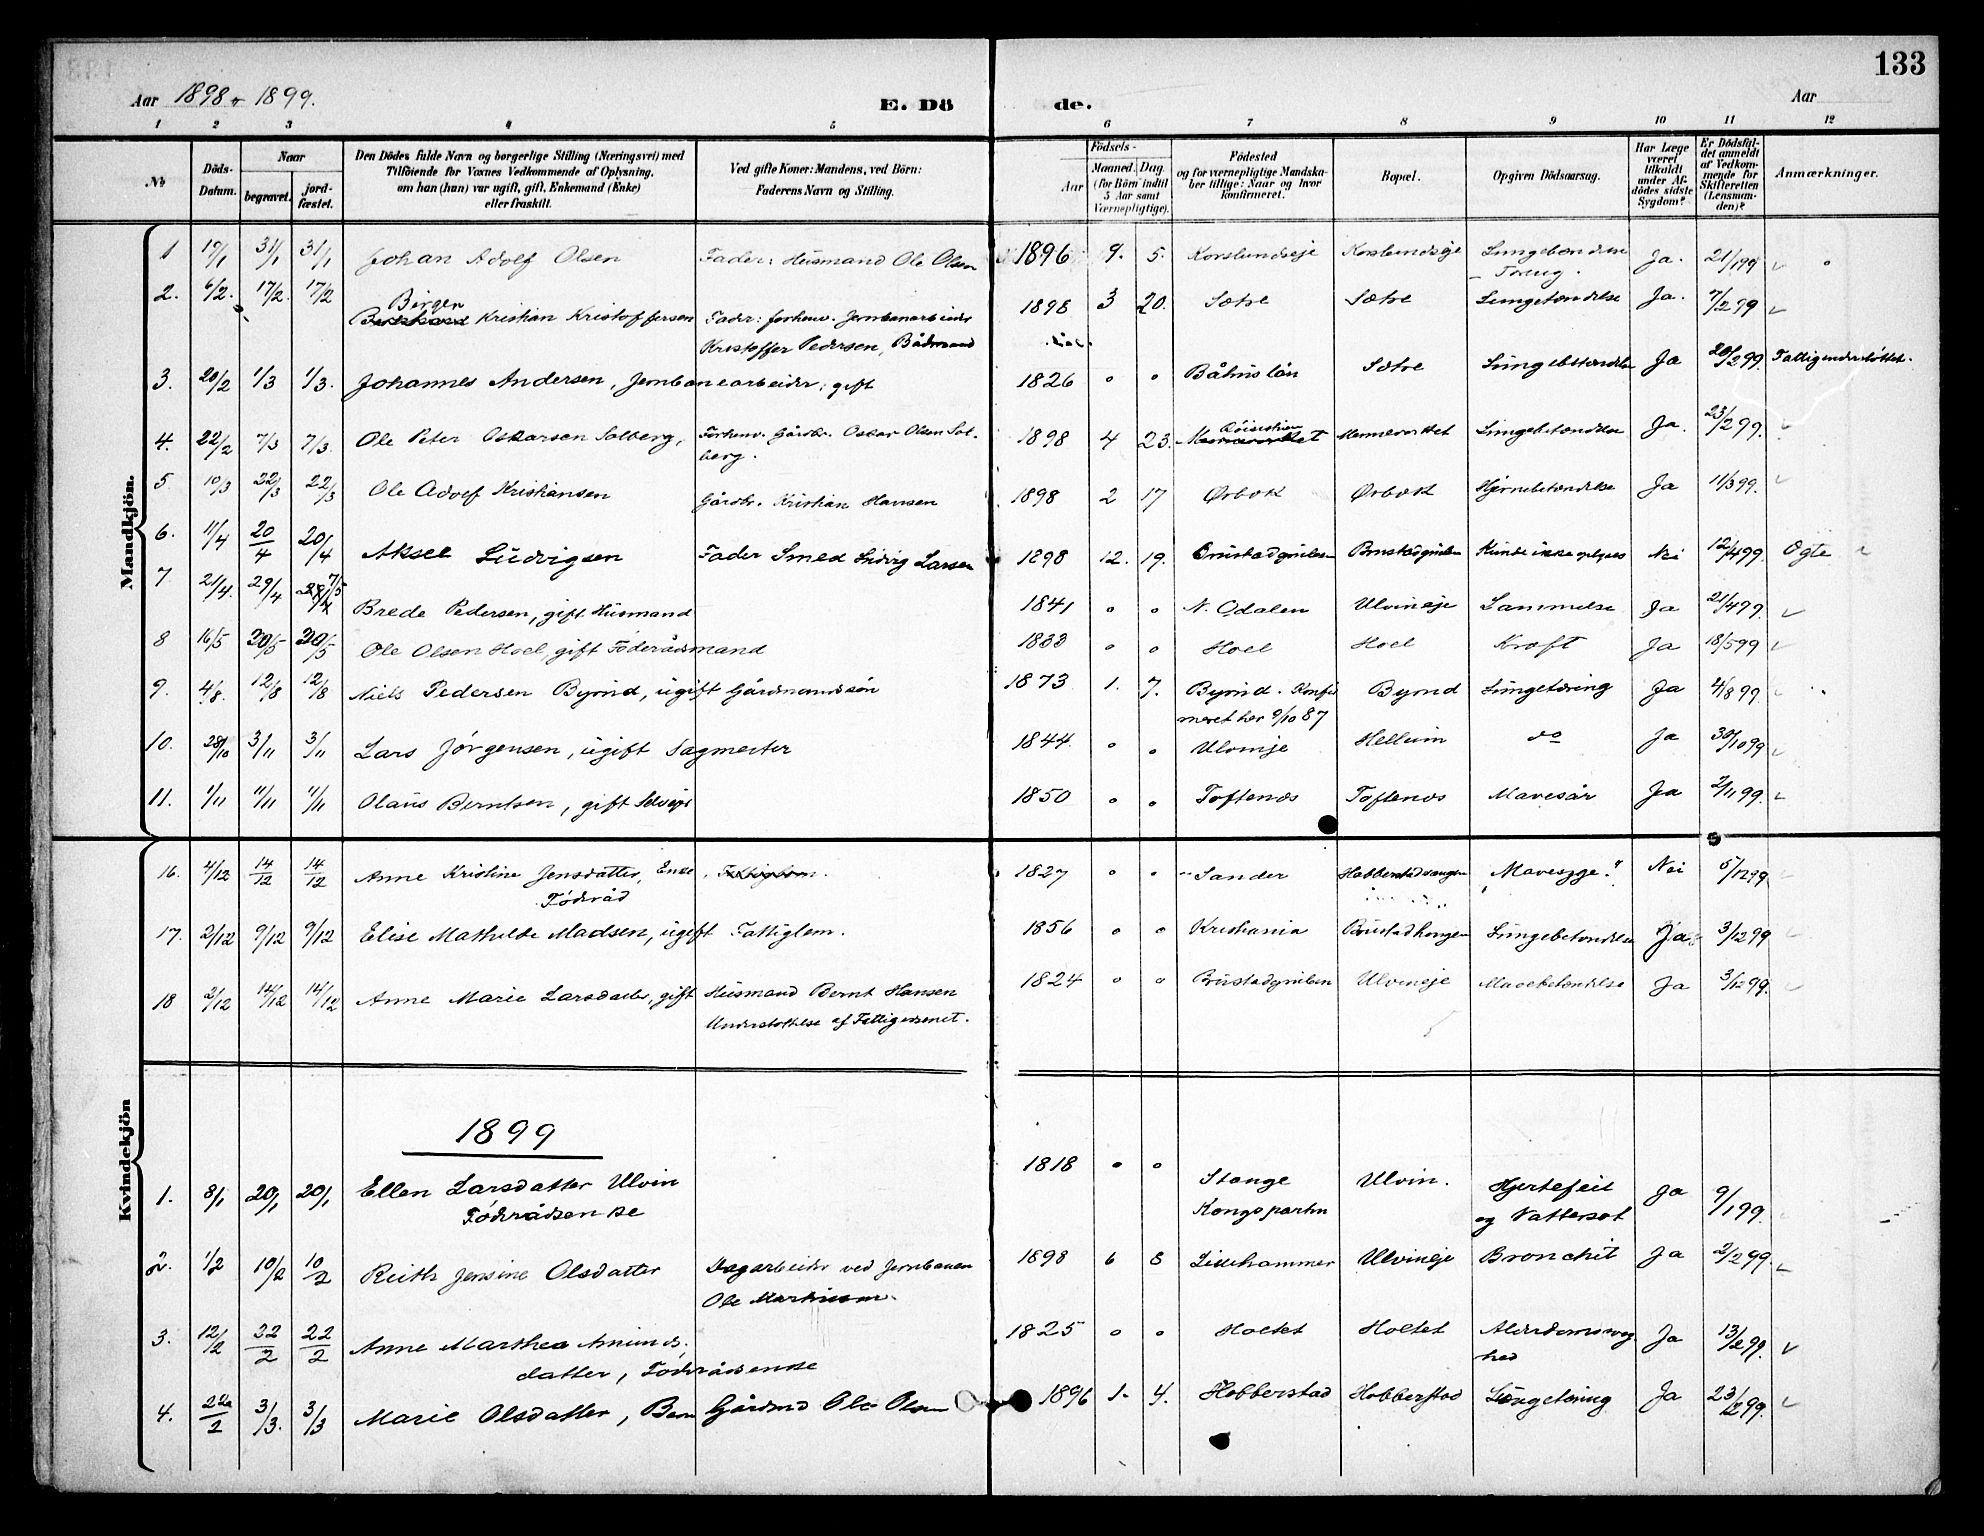 133
Aar 1898 - 1899.
E. Dö de.
Aar
1 2 3 4 5 6 7 8 9 10 11 12
No
Döds-Datum.
Naar
begravet.
jord-fæstet.
Den Dödes fulde Navn og borgerlige Stilling (Næringsvei) med
Tilföiende for Voxnes Vedkommende af Oplysning,
om han (hun) var ugift, gift, Enkemand (Enke)
eller fraskilt.
Ved gifte Koner: Mandens, ved Börn:
Faderens Navn og Stilling.
Födsels-
Aar
Maaned. Dag.
(for Börn indtil
5 Aar samt
Værnepligtige).
Födested
og for værnepligtige Mandska-
ber tillige: Naar og hvor
konfirmeret.
Bopæl.
Opgiven Dödsaarsag.
Har Læge
været
tilkaldt
under Af-
dödes sidste
Sygdom?
Er Dödsfal-
det anmeldt
af Vedkom-
mende for
Skifteretten
(Lensman-
den)?
Anmærkninger.
Mandkjön.
1 19/1 31/1 31/1 Johan Adolf Olsen Fader: Husmand Ole Olsen 1896 9. 5. Korslundseje Korslundseje Lungebetændelse Ja. 21/1 99
2. 6/2. 17/2. 17/2 Birger Kristian Kristoffersen Fader: forhenv. Jernbanearbeider 1898 3 20. Sætre Sætre Lungebetændelse Ja. 7/2 99
Kristoffer Pedersen, Bådmand
3. 20/2 1/3 1/3. Johannes Andersen, Jernbanearbeider, gift 1826 0 0 Båhuslän Sætre Lungebetændelse Ja 20/2 99. Fattigunderstøttet.
4. 22/2 7/3 7/3. Ole Peter Oskarsen Solberg, Forhenv. Gårdbr. Oskar Olsen Sol-
berg. 1898 4 23. Menneverket Lungebetændelse Ja. 23/2 99.
5 10/3 22/3 22/3 Ole Adolf Kristiansen Gårdbr. Kristian Hansen 1898 2 17 Ørbæk Ørbæk Hjernebetændelse Ja 11/3 99.
6. 11/4 20/4 20/4 Aksel Ludvigsen Fader Smed Ludvig Larsen 1898 12. 19. Brustadgrinden Brustadgrinden Kunde ikke oplyses Nei 12/4 99. Ogte
7 21/4. 29/4 7/5 Brede Pedersen, gift Husmand 1841 0 0 N. Odalen Ulvineje Lammelse Ja 21/4 99.
8 16/5 20/5 20/5 Ole Olsen Hoel, gift Føderådsmand 1833 0 0 Hoel Hoel Kræft Ja 18/5 99
9. 4/8. 12/8 12/8 Niels Pedersen Byrud, ugift Gårdmandssøn 1873 1. 7. Byrud. Konfir-
meret her 9/10 87 Byrud Lungetæring Ja 4/8 99
10. 28/10 3/11 3/11 Lars Jørgensen, ugift Sagmester 1844 0 0 Ulvineje Hellum do Ja 30/10 99
11. 1/11 11/11 11/11 Olaus Berntsen, gift Selveier 1850 0 0 Toftenæs Toftenæs Mavesår Ja 2/11 99.
Kvindekjön
16. 4/12 14/12 14/12 Anne Kristine Jensdatter, Enke, Fattiglem. 1827 0 0 Sander Hobberstadvangen "Mavesyge." Nei 5/12 99
Föderåd
17. 2/12 9/12 9/12 Elise Mathilde Madsen, ugift Fattiglem. 1856 0 0 Kristiania Brustadhaugen Lungebetændelse Ja 3/12 99
18 2/12 14/12 14/12 Anne Marie Larsdatter, gift Husmand Bernt Hansen 1824 0 0 Brustadgrinden Ulvineje Mavebetændelse Ja 3/12 99.
Understøttelse af Fattigvæsenet.
1899
1. 8/1 20/1 20/1 Ellen Larsdatter Ulvin 1818 0 0 Stange Ulvin. Hjertefeil Ja 9/1 99.
Föderådsenke Kongsparten og Vattersot
2. 1/2 10/2 10/2 Ruth Jensine Olsdatter Dagarbeider ved Jernbanen 1898 6 8 Lillehammer Ulvineje Bronchit Ja 2/2 99.
Ole Martinsen.
3. 12/2 22/2 22/2 Anne Marthea Amunds- 1825 0 0 Holtet Holtet Alderdomssvag- Ja 13/2 99.
datter, Föderådsenke hed
4. 22/2 3/3. 3/3 Marie Olsdatter, Barn Gårdmd Ole Olsen 1896 1. 4. Hobberstad Hobberstad Lungetæring Ja 23/2 99.